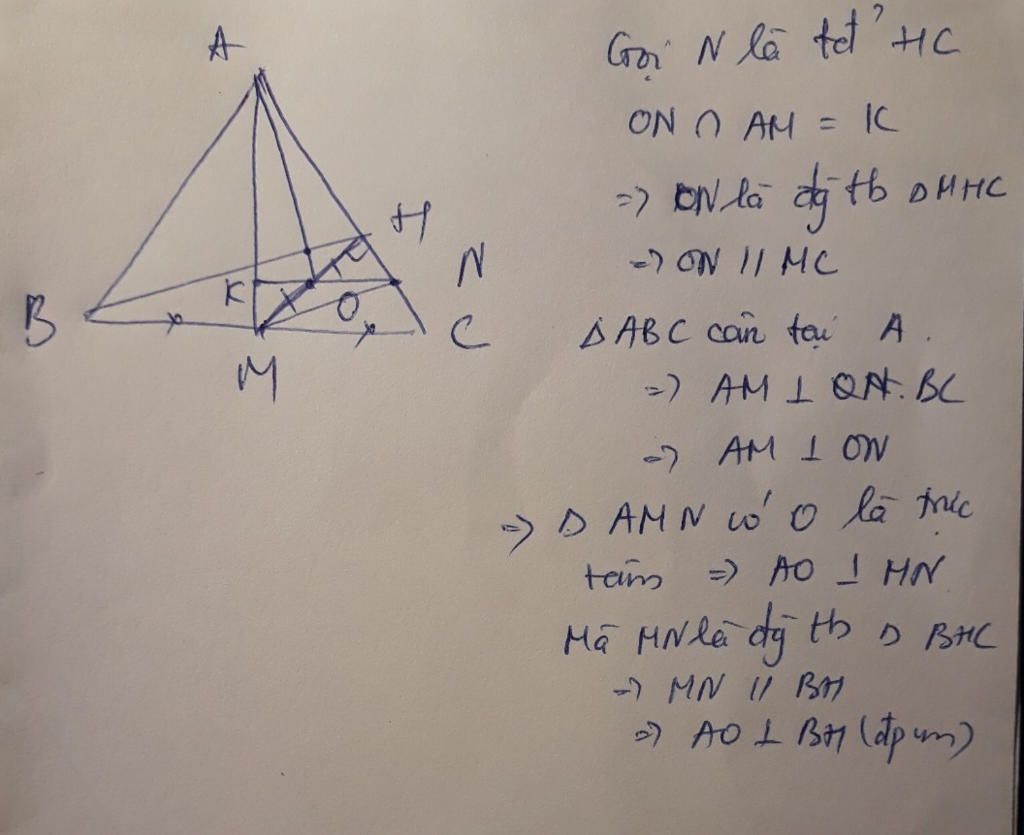 A
H
K
N
B
O
C
M
Gọi N là tđ HC
ON ∩ AM = K
=> ON là đg tb Δ MHC
=> ON // MC
Δ ABC cân tại A.
=> AM ⊥ BC
=> AM ⊥ ON
=> Δ AMN có O là trực
tâm => AO ⊥ MN
Mà MN là đg tb Δ BHC
=> MN // BH
=> AO ⊥ BH (đpcm)